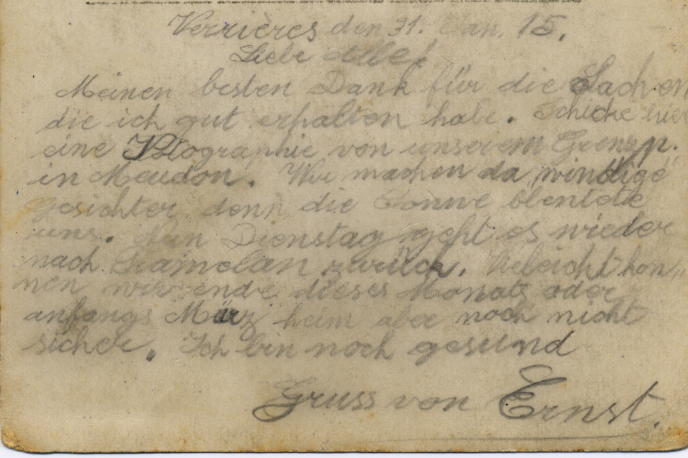 Verrières den 31. Jan. 15.
Liebe alle!
Meinen besten Dank für die Sachen
die ich gut erhalten habe. Schicke hier
eine Photographie von unserem Grenzp.
in Meudon. Wir machen da "windige"
gesichter denn die Sonne blentete
uns. Nun Dienstag geht es wieder
nach Tramelan zurück. Vieleicht kon-
nen wir ende dieses Monats oder
anfangs März heim aber noch nicht
sicher. Ich bin noch gesund
Gruss von Ernst.